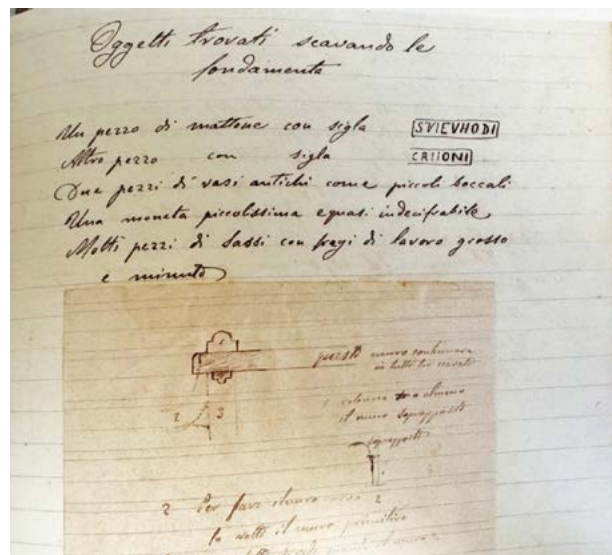 Oggetti trovati scavando le
fondamenta
Un pezzo di mattone con sigla SVIEVHODI
Altro pezzo con sigla CRIIONI
Due pezzi di vasi antichi come piccoli boccali
Una moneta piccolissima e quasi indecifrabile
Molti pezzi di sassi con fregi di lavoro grosso
e minuto
1
questo muro continuava
in tutto lo scavato
2 3
il muro sovrapposto
sovrapposto
2
2 Per fare
fu rotto il muro primitivo